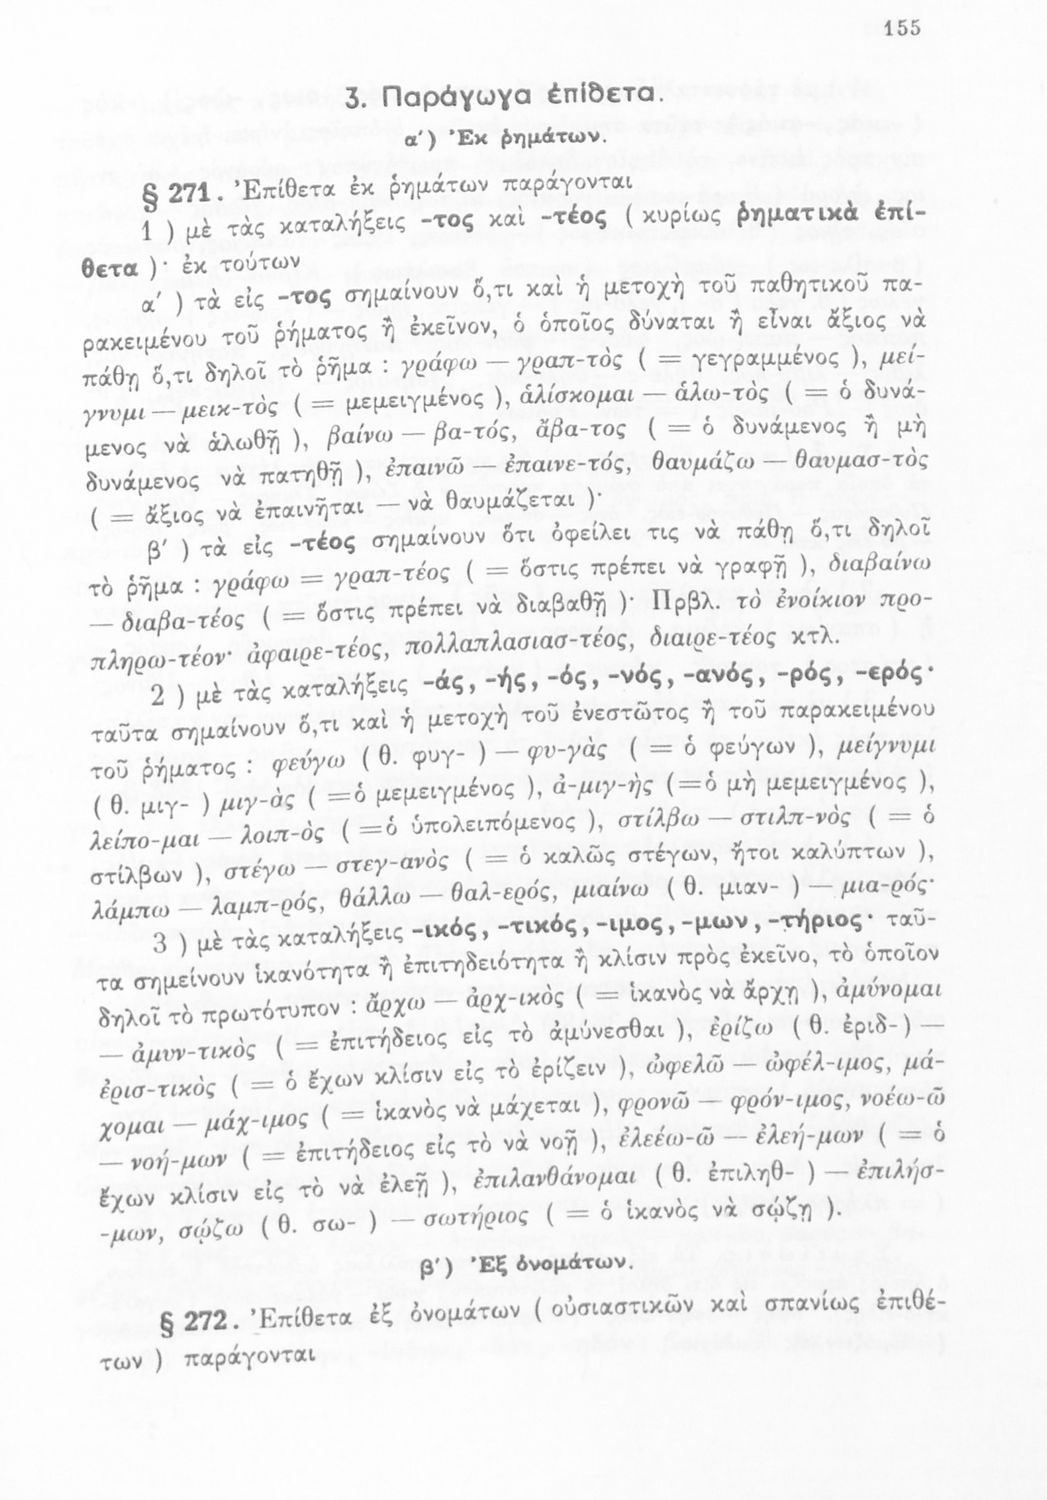 155
3. Παράγωγα ἐπίθετα.
α΄) Ἐκ ῥημάτων.
§ 271. Ἐπίθετα ἐκ ῥημάτων παράγονται
1 ) μὲ τὰς καταλήξεις -τος καὶ -τέος ( κυρίως ῥηματικὰ ἐπί-
θετα )· ἐκ τούτων
α΄ ) τὰ εἰς -τος σημαίνουν ὅ,τι καὶ ἡ μετοχὴ τοῦ παθητικοῦ πα-
ρακειμένου τοῦ ῥήματος ἢ ἐκεῖνον, ὁ ὁποῖος δύναται ἢ εἶναι ἄξιος νὰ
πάθῃ ὅ,τι δηλοῖ τὸ ῥῆμα : γράφω — γραπ-τὸς ( = γεγραμμένος ), μεί-
γνυμι — μεικ-τὸς ( = μεμειγμένος ), ἁλίσκομαι — ἁλω-τὸς ( = ὁ δυνά-
μενος νὰ ἁλωθῇ ), βαίνω — βα-τός, ἄβα-τος ( = ὁ δυνάμενος ἢ μὴ
δυνάμενος νὰ πατηθῇ ), ἐπαινῶ — ἐπαινε-τός, θαυμάζω — θαυμασ-τὸς
( = ἄξιος νὰ ἐπαινῆται — νὰ θαυμάζεται )·
β΄ ) τὰ εἰς -τέος σημαίνουν ὅτι ὀφείλει τις νὰ πάθῃ ὅ,τι δηλοῖ
τὸ ῥῆμα : γράφω = γραπ-τέος ( = ὅστις πρέπει νὰ γραφῇ ), διαβαίνω
— διαβα-τέος ( = ὅστις πρέπει νὰ διαβαθῇ )· Πρβλ. τὸ ἐνοίκιον προ-
πληρω-τέον· ἀφαιρε-τέος, πολλαπλασιασ-τέος, διαιρε-τέος κτλ.
2 ) μὲ τὰς καταλήξεις -άς, -ής, -ός, -νός, -ανός, -ρός, -ερός·
ταῦτα σημαίνουν ὅ,τι καὶ ἡ μετοχὴ τοῦ ἐνεστῶτος ἢ τοῦ παρακειμένου
τοῦ ῥήματος : φεύγω ( θ. φυγ- ) — φυ-γὰς ( = ὁ φεύγων ), μείγνυμι
( θ. μιγ- ) μιγ-ὰς ( =ὁ μεμειγμένος ), ἀ-μιγ-ὴς (=ὁ μὴ μεμειγμένος ),
λείπο-μαι — λοιπ-ὸς ( =ὁ ὑπολειπόμενος ), στίλβω — στιλπ-νὸς ( = ὁ
στίλβων ), στέγω — στεγ-ανὸς ( = ὁ καλῶς στέγων, ἤτοι καλύπτων ),
λάμπω — λαμπ-ρός, θάλλω — θαλ-ερός, μιαίνω ( θ. μιαν- ) — μια-ρός·
3 ) μὲ τὰς καταλήξεις -ικός, -τικός, -ιμος, -μων, -τήριος· ταῦ-
τα σημείνουν ἱκανότητα ἢ ἐπιτηδειότητα ἢ κλίσιν πρὸς ἐκεῖνο, τὸ ὁποῖον
δηλοῖ τὸ πρωτότυπον : ἄρχω — ἀρχ-ικὸς ( = ἱκανὸς νὰ ἄρχῃ ), ἀμύνομαι
— ἀμυν-τικὸς ( = ἐπιτήδειος εἰς τὸ ἀμύνεσθαι ), ἐρίζω ( θ. ἐριδ-) —
ἐρισ-τικὸς ( = ὁ ἔχων κλίσιν εἰς τὸ ἐρίζειν ), ὠφελῶ — ὠφέλ-ιμος, μά-
χομαι — μάχ-ιμος ( = ἱκανὸς νὰ μάχεται ), φρονῶ — φρόν-ιμος, νοέω-ῶ
— νοή-μων ( = ἐπιτήδειος εἰς τὸ νὰ νοῇ ), ἐλεέω-ῶ — ἐλεή-μων ( = ὁ
ἔχων κλίσιν εἰς τὸ νὰ ἐλεῇ ), ἐπιλανθάνομαι ( θ. ἐπιληθ- ) — ἐπιλήσ-
-μων, σῴζω ( θ. σω- ) — σωτήριος ( = ὁ ἱκανὸς νὰ σῴζῃ ).
β΄) Ἐξ ὀνομάτων.
§ 272. Ἐπίθετα ἐξ ὀνομάτων ( οὐσιαστικῶν καὶ σπανίως ἐπιθέ-
των ) παράγονται